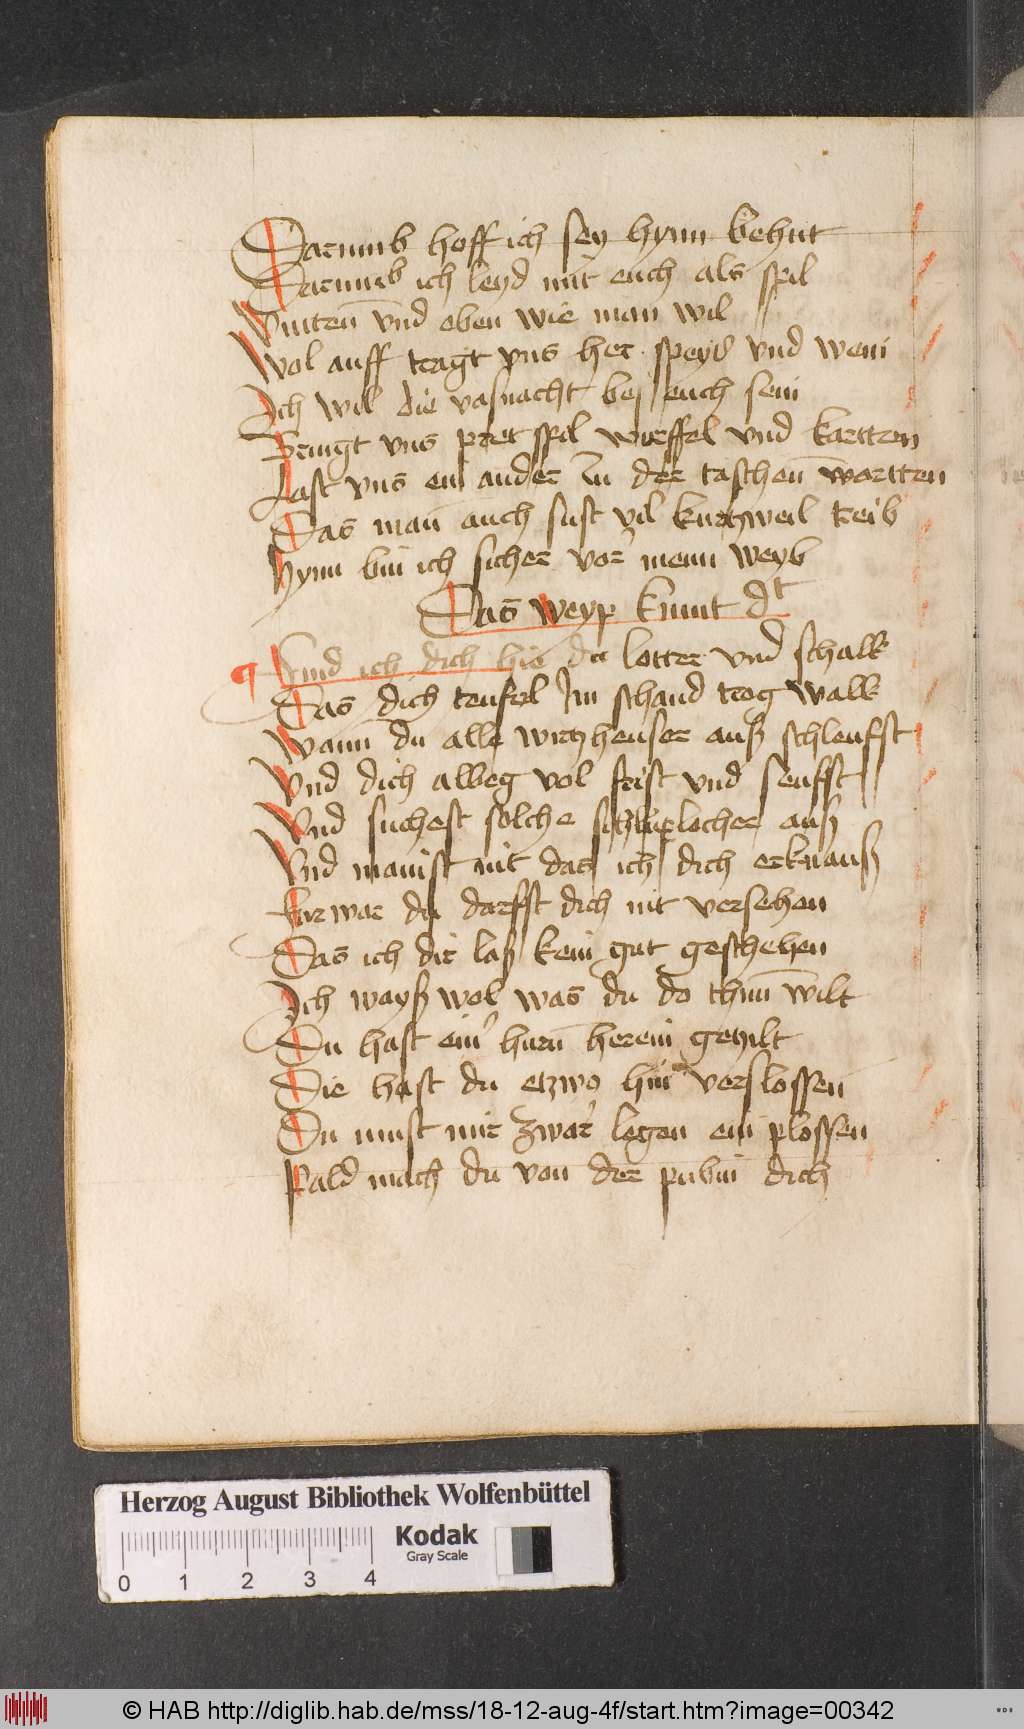 Darumb hoff ich sey hynn behut
Darumb ich leyd mit euch als spil
Vntten vnd oben wie man wil
Wol auff tragt vns her speyß vnd wein
Ich wil die vasnacht bej euch sein
Bringt vns pretspil wurffel vnd kartten
Last vns ein ander zu der taschen wartten
Das man auch sust vil kurtzweil treib
hynn bin ich sicher vor meim weyb
Das weyp kumt dt
¶ Find ich dich hie du lotter vnd schalk
Das dich teufel Im schand trog walk
Wann du alle wirtzheuser auß schleufst
Vnd dich alweg vol frist vnd seufst
Vnd suchest solche schluplocher auß
Vnd mainst nit das ich dich erknauß
Furwar du darfst dich nit versehen
Das ich dir laß kein gut geschehen
Ich wayß wol was du do thun wilt
Du hast ein hurn herein gezilt
Die hast du etzwo hin verslossen
Du must mir zwar legen ein plossen
Pald mach du von der pubin dich
Herzog August Bibliothek Wolfenbüttel
Kodak
Gray Scale
0 1 2 3 4
© HAB http://diglib.hab.de/mss/18-12-aug-4f/start.htm?image=00342